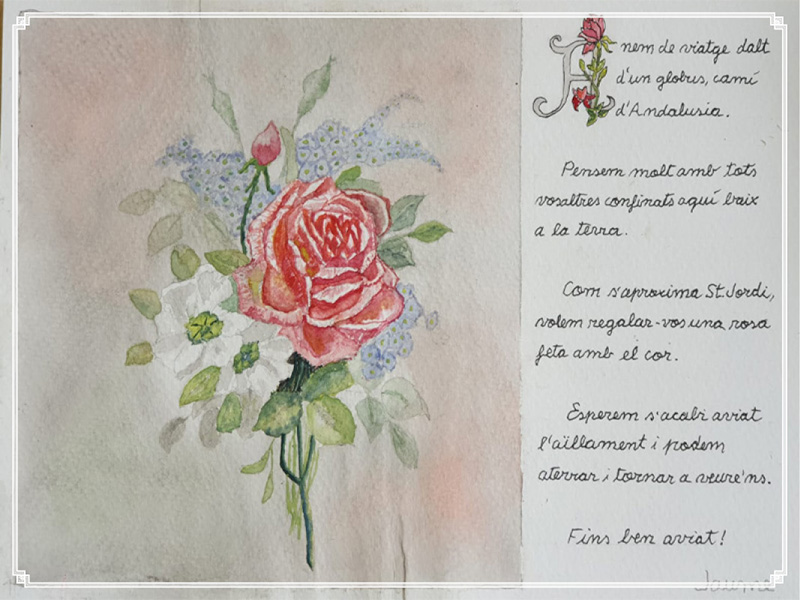 Anem de viatge dalt
d'un globus, camí
d'Andalusia.
Pensem molt amb tots
vosaltres confinats aquí baix
a la terra.
Com s'aproxima St. Jordi,
volem regalar-vos una rosa
feta amb el cor.
Esperem s'acabi aviat
l'aïllament i podem
aterrar i tornar a veure'ns.
Fins ben aviat!
Jaume